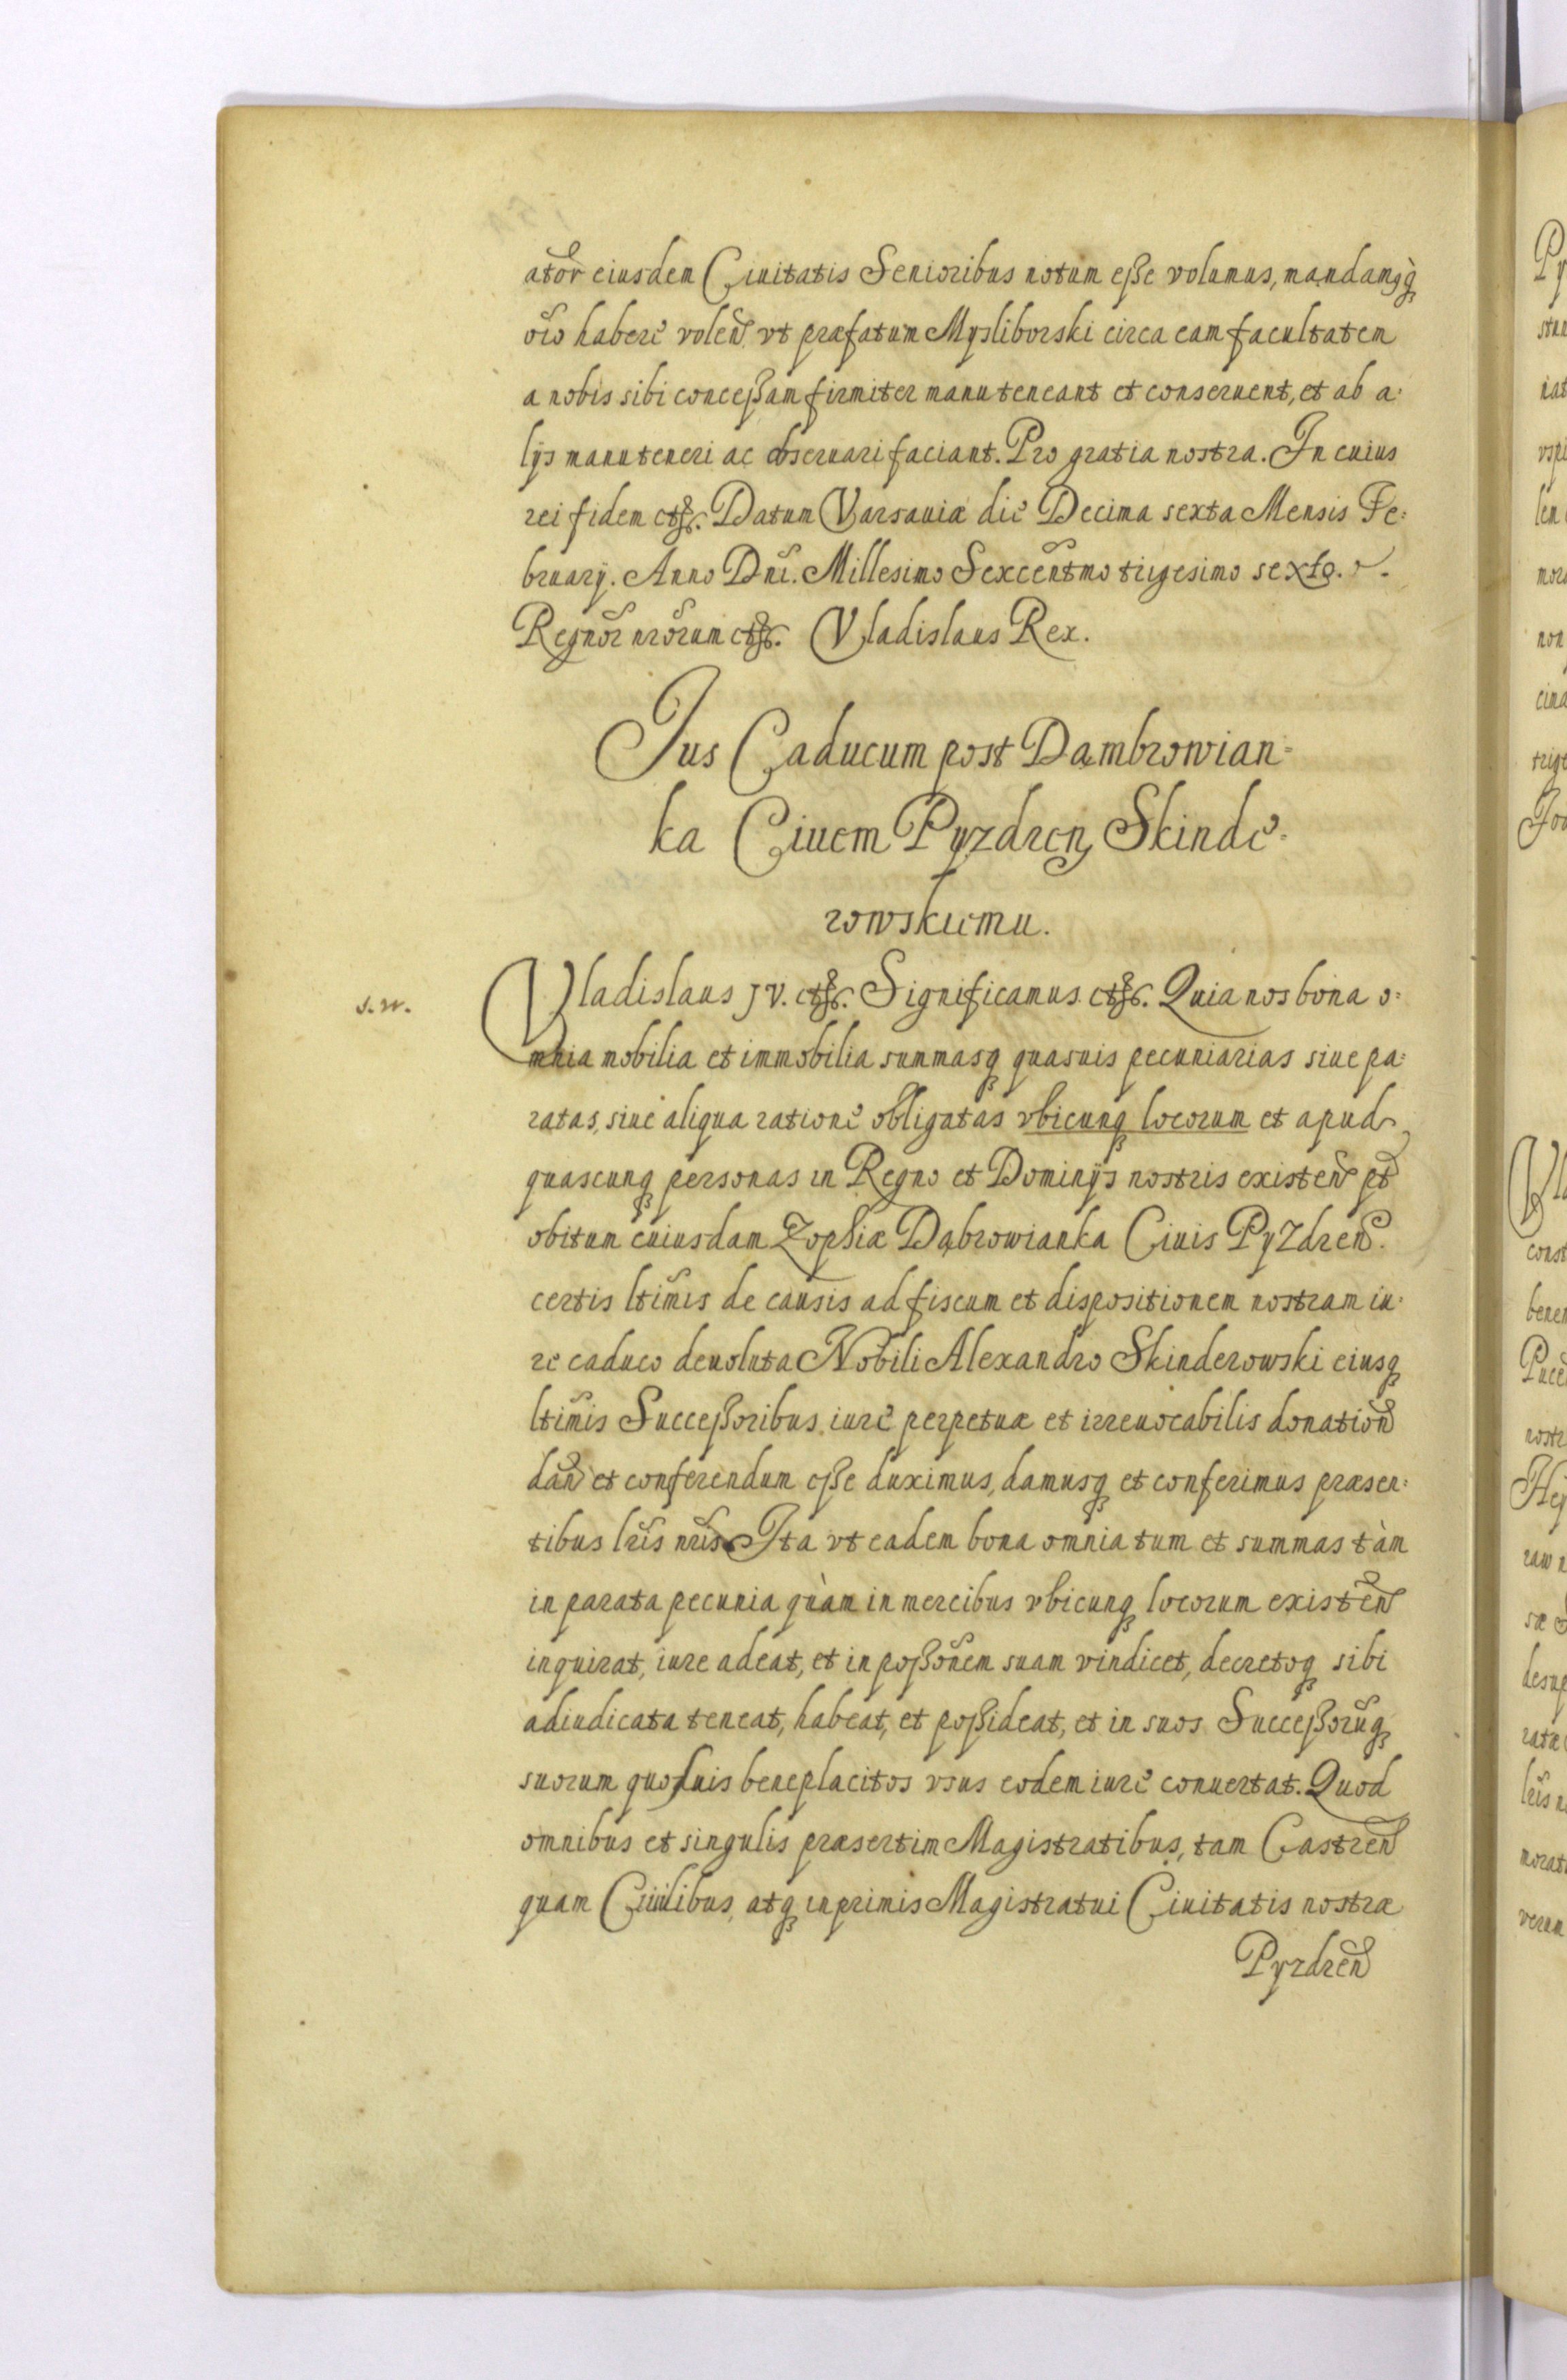 ator eiusdem Ciuitatis Senioribus notum eße volumus, mandamusq
oio habere volen. vt præfatum Mysliborski circa eam facultatem
a nobis sibi conceßam firmiter manuteneant et conseruent, et ab a:
lijs manuteneri ac obseruari faciant. Pro gratia nostra. In cuius
rei fidem etc. Datum Varsauiæ die Decima sexta Mensis Fe:
bruarij. Anno Dni. Millesimo Sexcentmo trigesimo sexto.
Regnor nrorum etc. Vladislaus Rex.
Ius Caducum post Dambrowian=
ka Ciuem Pyzdren Skinde=
rowskiemu.
s.w.
Vladislaus IV. etc. Significamus etc. Quia nos bona o:
mnia mobilia et immobilia summasq quasuis pecuniarias siue pa:
ratas, siue aliqua ratione obligatas vbicunq locorum et apud
quascunq personas in Regno et Dominijs nostris existen pt
obitum cuiusdam Zophiæ Dąbrowianka Ciuis Pyzdren.
certis ltimis de causis ad fiscum et dispositionem nostram iu:
re caduco deuoluta Nobili Alexandro Skinderowski eiusq
ltimis Succeßoribus iure perpetuæ et irreuocabilis donation
dan et conferendum eße duximus, damusq et conferimus præsen:
tibus lris nris. Ita vt eadem bona omnia tum et summas tàm
in parata pecunia quàm in mercibus vbicunq locorum existen
inquirat, iure adeat, et in poßonem suam vindicet, decretoq sibi
adiudicata teneat, habeat, et poßideat, et in suos Succeßoruq
suorum quosuis beneplacitos vsus eodem iure conuertat. Quod
omnibus et singulis præsertim Magistratibus, tam Castren
quam Ciuilibus, atq inprimis Magistratui Ciuitatis nostræ
Pyzdren